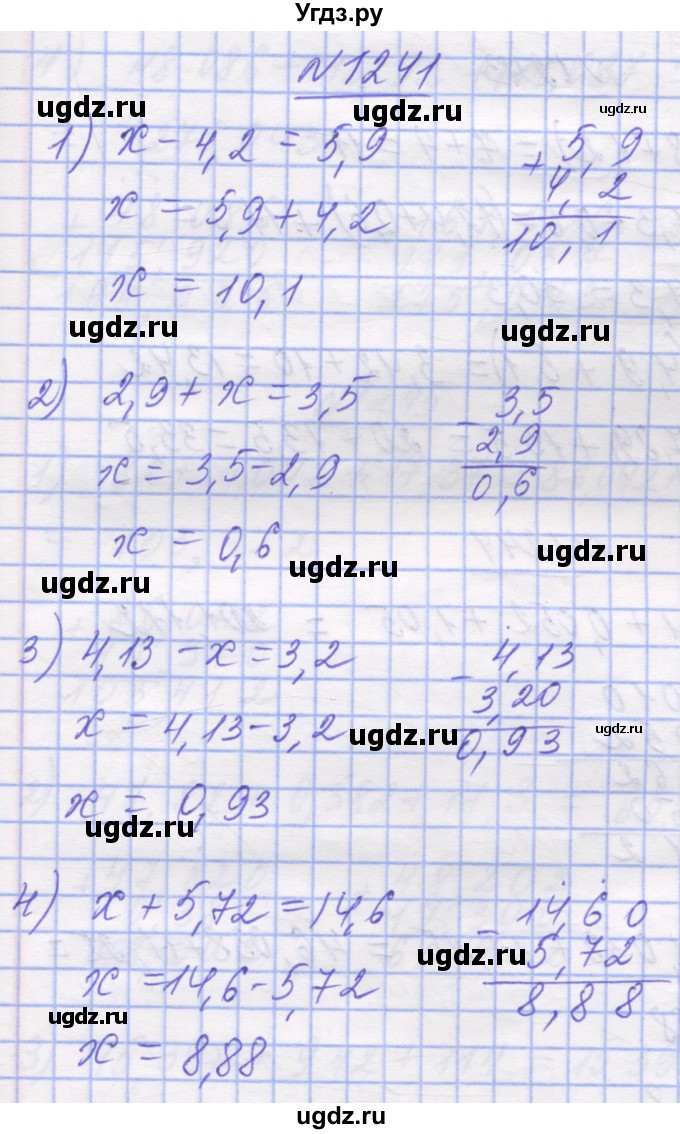 Угдз.ру
№1241
ugdz.ru ugdz.ru ugdz.ru
1) x - 4,2 = 5,9
x = 5,9 + 4,2
x = 10,1
+ 5,9
4,2
10,1
ugdz.ru ugdz.ru
2) 2,9 + x = 3,5
x = 3,5 - 2,9
x = 0,6
- 3,5
2,9
0,6
ugdz.ru ugdz.ru ugdz.ru
3) 4,13 - x = 3,2
x = 4,13 - 3,2
x = 0,93
- 4,13
3,20
0,93
ugdz.ru ugdz.ru
ugdz.ru
4) x + 5,72 = 14,6
x = 14,6 - 5,72
x = 8,88
- 14,60
5,72
8,88
ugdz.ru
ugdz.ru
ugdz.ru